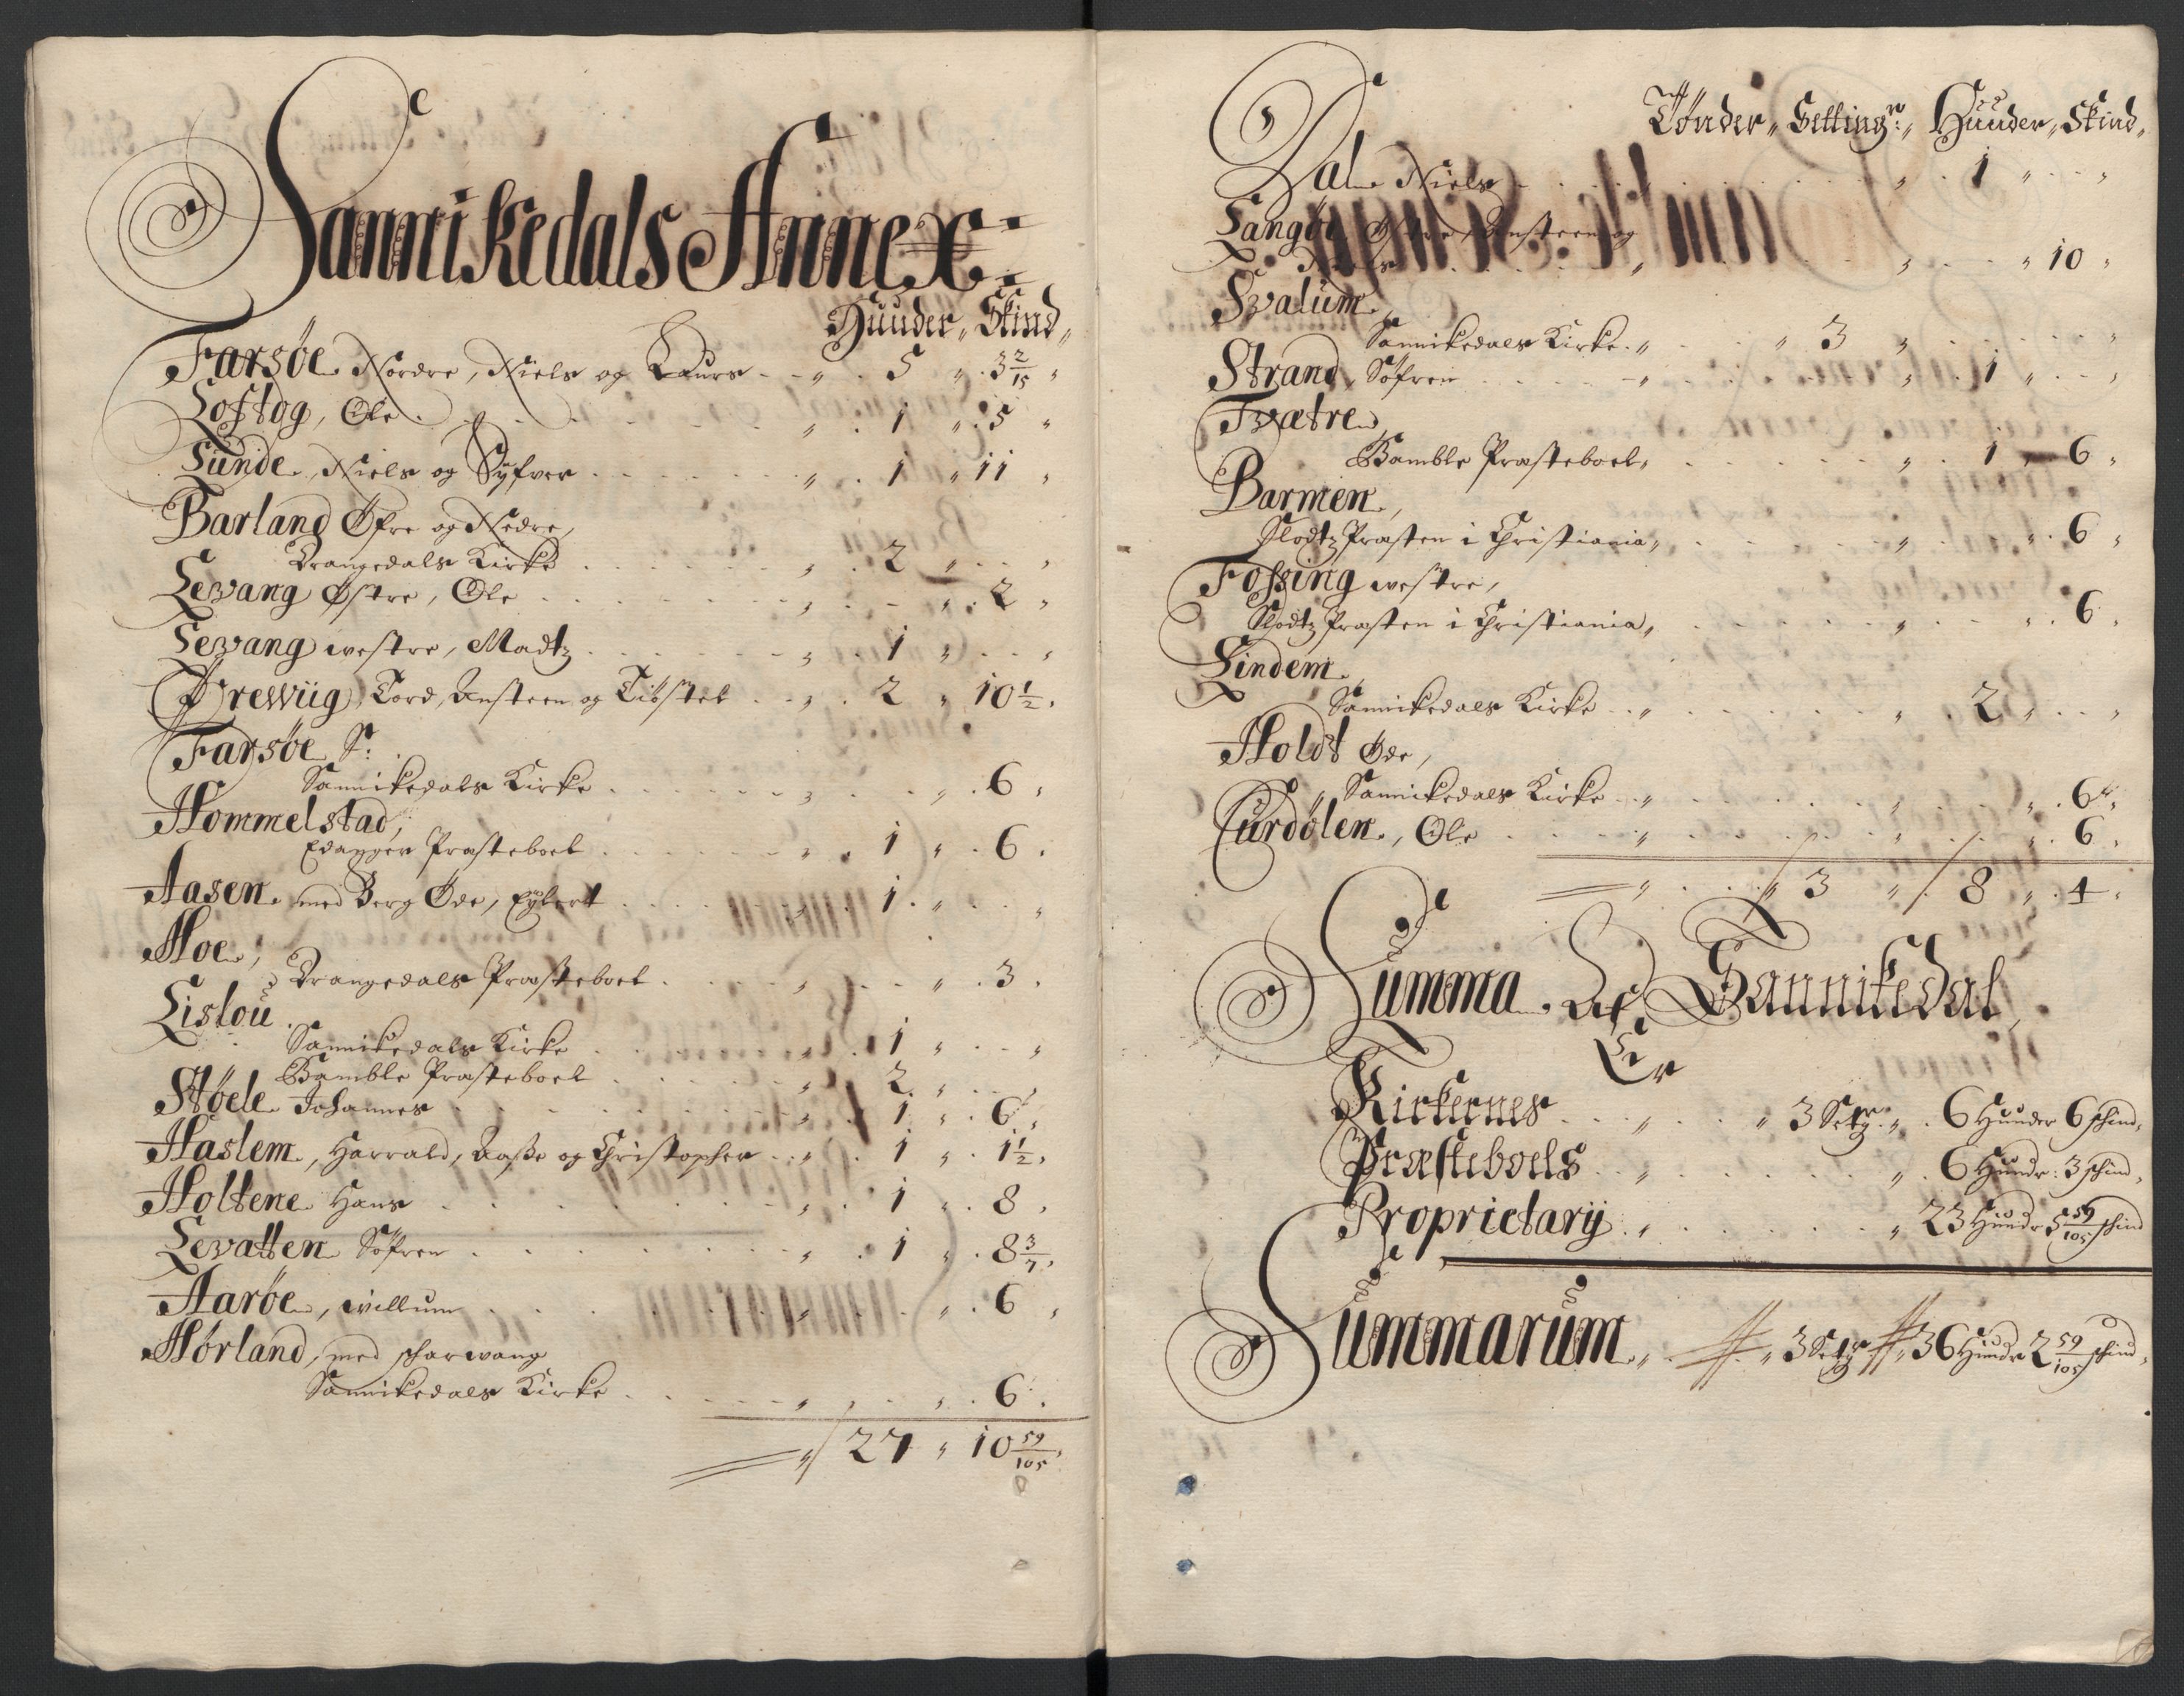 Sannikedals Annex
Huuder, Skind,
Farsøe Nordre, Niels og Laurs 5 3 2/15
Loftog, Ole 1 5
Lunde, Niels og Syfver 1 11
Barland Øfre og Nedre,
Drangedals Kirke 2
Levang Østre, Ole 2
Levang westre, Madtz 1
Ørewiig, Tord, Ansteen og Tióstel 2 10 1/2
Farsøe S:
Sannikedals Kirke 6
Hommelstad,
Edanger Præsteboel 1 6
Aasen med Berg Øde, Eylert 1
Hoe,
Drangedals Præsteboel 3
Lislou
Sannikedals Kirke 1
Bamble Præsteboel 2
Støele Johannes 1 6
Haslem, Harrald, Aasße og Christopher 1 1 1/2
Holtene Hans 1 8
Levatten Søfren 1 8 3/7
Aarøe, willum 6
Hørland, med skarwang
Sannikedals Kirke 6
27 10 59/105
Tønder, Setting:r, Huuder, Skind,
Dal Niels 1
Langøe Østre, Ansteen og
Niels 10
Svalum
Sannikedals Kirke 3
Strand, Søfren 1
Tvætre
Bamble Præsteboel, 1 6
Barmen,
Slodtz Præsten i Christiania, 6
Foßing westre,
Slodtz Præsten i Christiania, 6
Lindem
Sannikedals Kirke 2
Holdt Øde,
Sannikedals Kirke 6
Curdølen, Ole 6
3 8 4
Summa Af Sannikedal,
Er
Kirkernes 3 Setg:r 6 Huuder 6 skind,
Præsteboels 6 Huudr: 3 skind,
Proprietary 23 Huudr 5 59/105 skind
Summarum 3 Setgr 36 Huudr 2 59/105 skind,